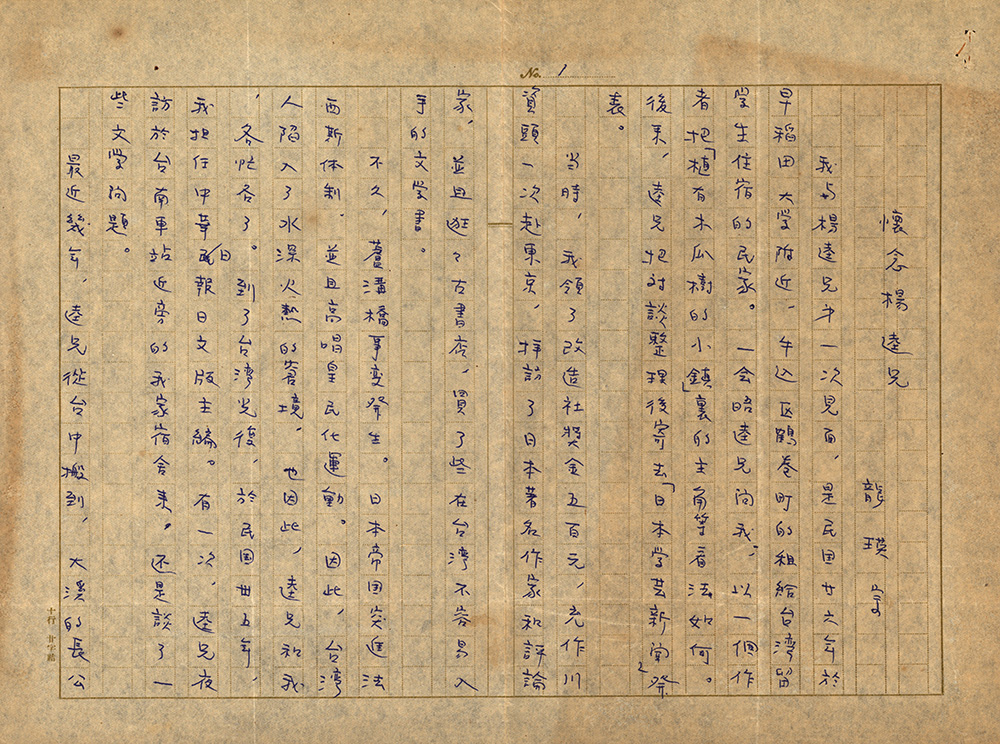 No. 1
懷念楊逵兄
龍瑛宗
我与楊逵兄才一次見面，是民国廿六年於
早稲田大学附近，牛込区鶴巻町的租給台湾留
学生住宿的民家。一会晤逵兄问我，以一個作
者把「植有木瓜樹的小鎮」裏的主角等看法如何。
後来，逵兄把对談整理後寄去「日本学芸新闻」發
表。
当時，我領了改造社奬金五百元，充作川
資頭一次赴東京，拝訪了日本著名作家和評論
家，並且逛了古書店，買了些在台湾不容易入
手的文学書。
不久，蘆溝橋事変発生。日本帝国突進法
西斯体制，並且高唱皇民化運動。因此，台湾
人陷入了水深火熱的窘境，也因此，逵兄和我
，各忙各了。到了台湾光復，於民国卅五年，
我担任中華日報日文版主編。有一次，逵兄夜
訪於台南車站近旁的我家宿舍来。还是談了一
些文学问題。
最近幾年，逵兄從台中搬到，大溪的長公
十行 廿字詰